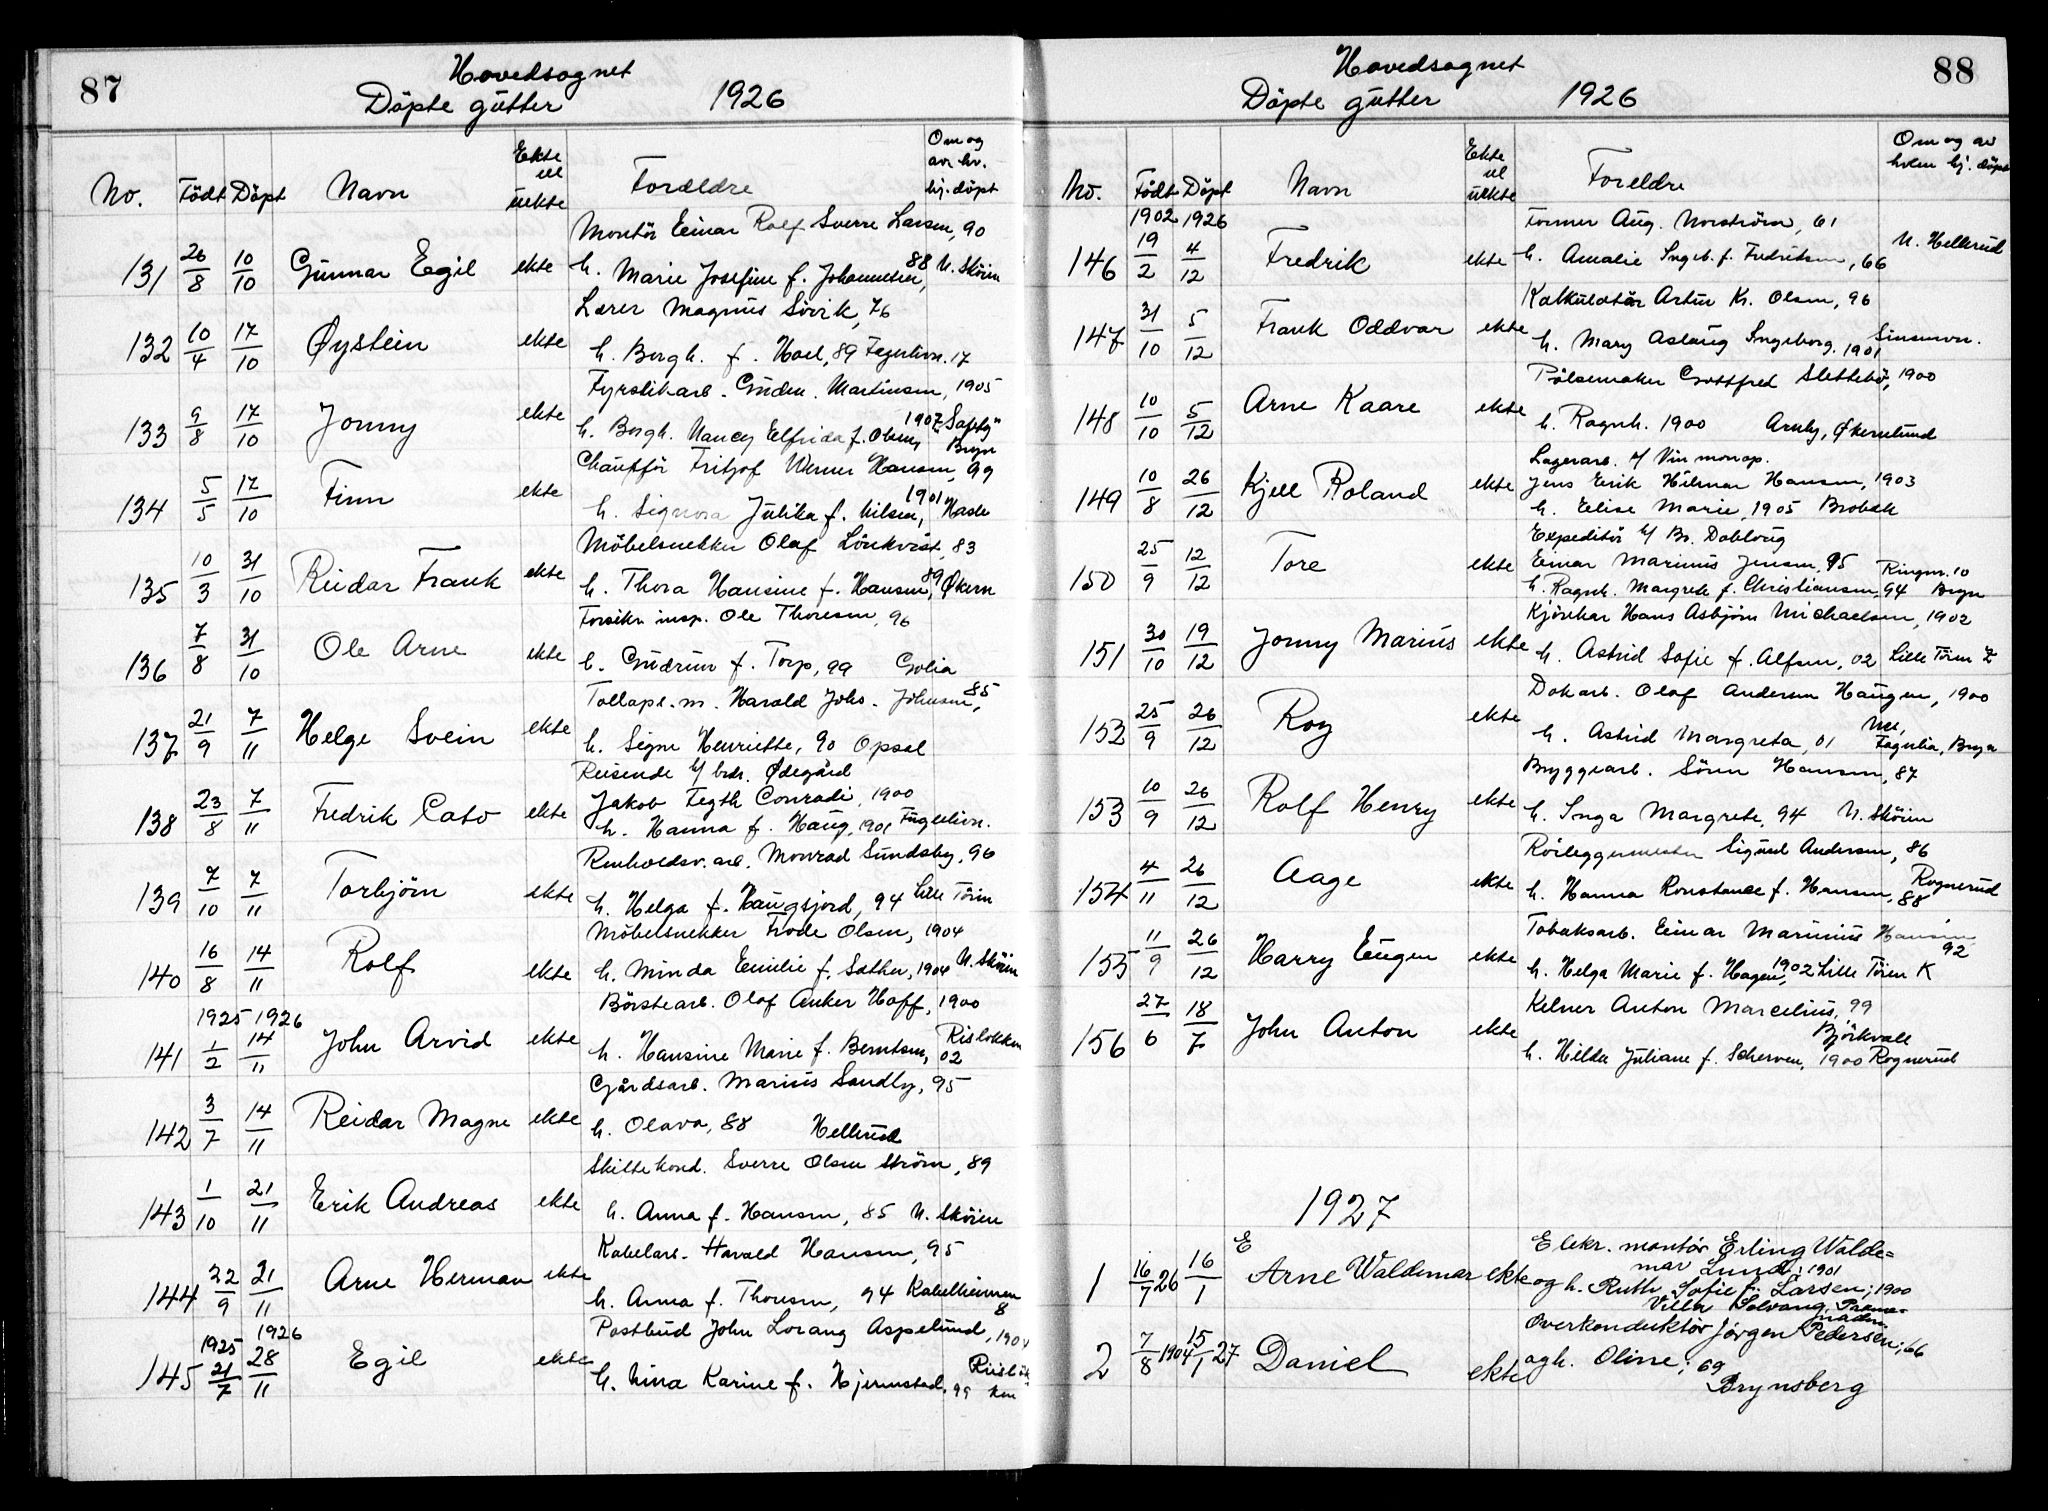 87
Hovedsognet
Döpte gütter 1926
No. Födt Döpt Navn Ekte el üekte Foreldre Om og av hv. hj. döpt
Montör Einar Rolf Sverre Larsen, 90
131 26/8 10/10 Günnar Egil ekte h. Marie Josefine f. Johannesen, 88 N. Sköien
Lærer Magnus Sövik, 76
132 10/4 17/10 Øystein ekte h. Borgh. f. Hoel, 89 Fagerlivn. 17
Fyrstikarb. Güdm. Martinsen, 1905
133 9/8 17/10 Jonny ekte h. Borgh. Nancy Elfrida f. Olsen, 1907 "Safety" Bryn
Chaüfför Fritjof Werner Hansen, 99
134 5/5 17/10 Finn ekte h. Signora Julika f. Nilsen, 1901 Hasle
Möbelsnekker Olaf Lönkvist, 83
135 10/3 31/10 Reidar Frank ekte h. Thora Hansine f. Hansen, 89 Økern
Forsikr. insp. Ole Thoresen, 96
136 7/8 31/10 Ole Arne ekte h. Güdrün f. Torp, 99 Golia
Tollaps. m. Harald Johs. Johnsen, 85
137 21/9 7/11 Helge Svein ekte h. Signe Henriette, 90 Opsal
Reisende h/ brdr. Ødegård
Jakob Fegth Conradi, 1900
138 23/8 7/11 Fredrik Cato ekte h. Hanna f. Haug, 1901 Fagerlivn.
Renholdsv. arb. Monrad Sündsby, 96
139 7/10 7/11 Torbjörn ekte h. Helga f. Haugsjord, 94 Lille Töien
Möbelsnekker Frode Olsen, 1904
140 16/8 14/11 Rolf ekte h. Minda Emilie f. Sæther, 1904 N. Sköien
Börstearb. Olaf Anker Hoff, 1900
1925 1926
141 1/2 14/11 John Arvid ekte h. Hansine Marie f. Berntsen, 02 Rislökken
Gårdsarb. Marius Sandby, 95
142 3/7 14/11 Reidar Magne ekte h. Olava, 88 Hellerud
Skiltekond. Sverre Olsen Ström, 89
143 1/10 21/11 Erik Andreas ekte h. Anna f. Hansen, 85 N. Skøien
Kabelarb. Harald Hansen, 95
144 22/9 21/11 Arne Herman ekte h. Anna f. Thoresen, 94 Kabelheimen 8
Postbud John Lorang Aspelund, 1904
1925 1926
145 21/7 28/11 Egil ekte h. Nina Karine f. Hjermstad, 99 Risløkken
88
Hovedsognet
Döpte gütter 1926
No. Födt Döpt Navn Ekte el üekte Foreldre Om og av hvem hj. döpt
1902 1926
Former Aug. Norström, 61
146 19/2 4/12 Fredrik ekte h. Amalie Ingeb. f. Fredriksen, 66 N. Hellerud
Kalkulatör Artür Kr. Olsen, 96
147 31/10 5/12 Frank Oddvar ekte h. Mary Aslaüg Ingeborg, 1901 Sinsenvn.
Pölsemaker Gottfred Slettebö, 1900
148 10/10 5/12 Arne Kaare ekte h. Ragnh. 1900 Arnby, Økernlund
Lagerarb. v/ Vin monop.
149 10/8 26/12 Kjell Roland ekte Jens Erik Hilmar Hansen, 1903
h. Elise Marie, 1905 Brobek
Expeditör h/ Br. Dobloug
150 25/9 12/12 Tore ekte Einar Marinius Jensen, 95 Ringvn. 10
h. Ragnh. Margrete f. Christiansen, 94 Bryn
Kjörekar Hans Asbjörn Michaelsen, 1902
151 30/10 19/12 Jonny Marius ekte h. Astrid Sofie f. Alfsen, 02 Lille Töien Z
Dokarb. Olaf Andersen Haugen, 1900
152 25/9 26/12 Roy ekte h. Astrid Margreta, 01 Fagerlia, Bryn
Bryggearb. Sören Hansen, 87
153 10/9 26/12 Rolf Henry ekte h. Inga Margrete, 94 N. Sköien
Rörleggermester Sigurd Andersen, 86
154 4/11 26/12 Aage ekte h. Hanna Konstanse f. Hansen, 88 Rognerud
Tobaksarb. Einar Marinius Hansen, 92
155 11/9 26/12 Harry Eügen ekte h. Helga Marie f. Hagen, 1902 Lille Töien K
Kelner Anton Marcelius, 99
156 27/6 18/7 John Anton ekte h. Hilda Juliane f. Scherven, 1900 Björkvall Rognerud
1927
E Elekr. montör Erling Walde=
mar Lund; 1901
1 16/7 26 16/1 Arne Waldemar ekte og h. Ruth Sofie f. Larsen; 1900
Villa Solvang,
Overkonduktör Jørgen Pedersen; 66
2 7/8 1904 15/1 27 Daniel ekte og h. Oline; 69
Brynsberg